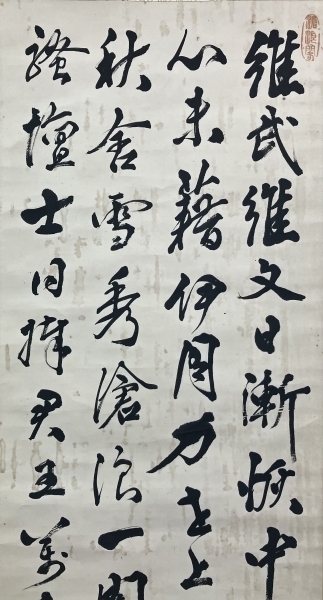 維武維文日漸恢中
心未藉伊周力老上
秋含雪秀滄浪一
騷壇士同捧君王萬